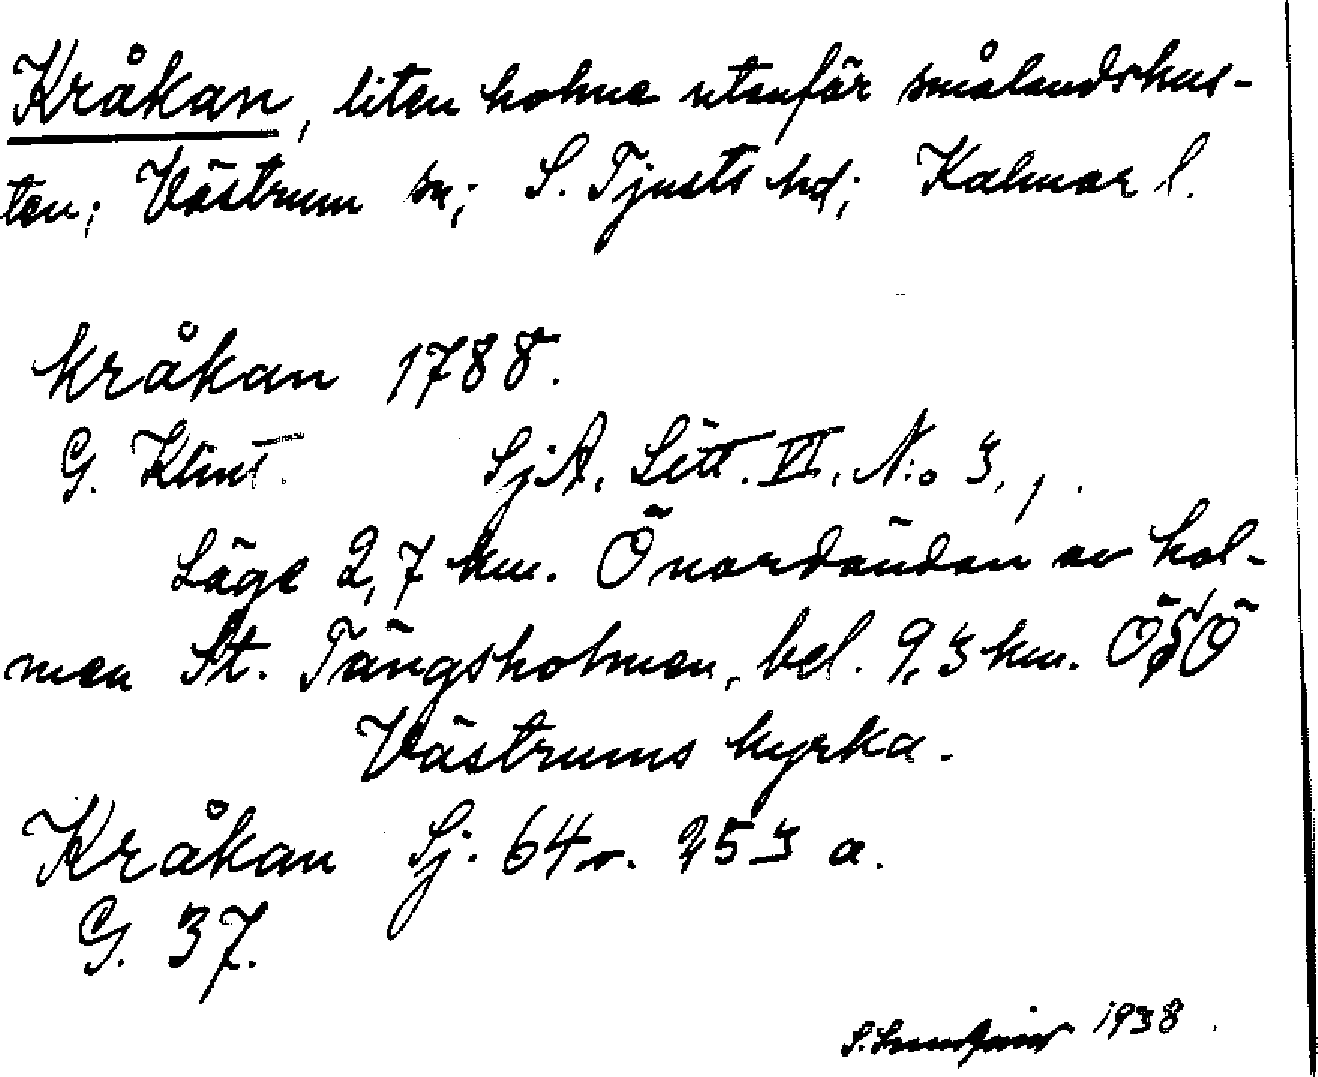 Kråkan, liten holme utanför smålandskus-
ten; Västrum sn; S. Tjusts hd; Kalmar l.
Kråkan 1788.
G. Klint. SjA. Litt. VI. N:o 3, 1.
Läge 2,7 km. Ö nordändan av hol-
men St. Tängsholmen, bel. 9,3 km. ÖSÖ
Västrums kyrka.
Kråkan Sj. 64 o. 253 a.
G. 37.
1938.